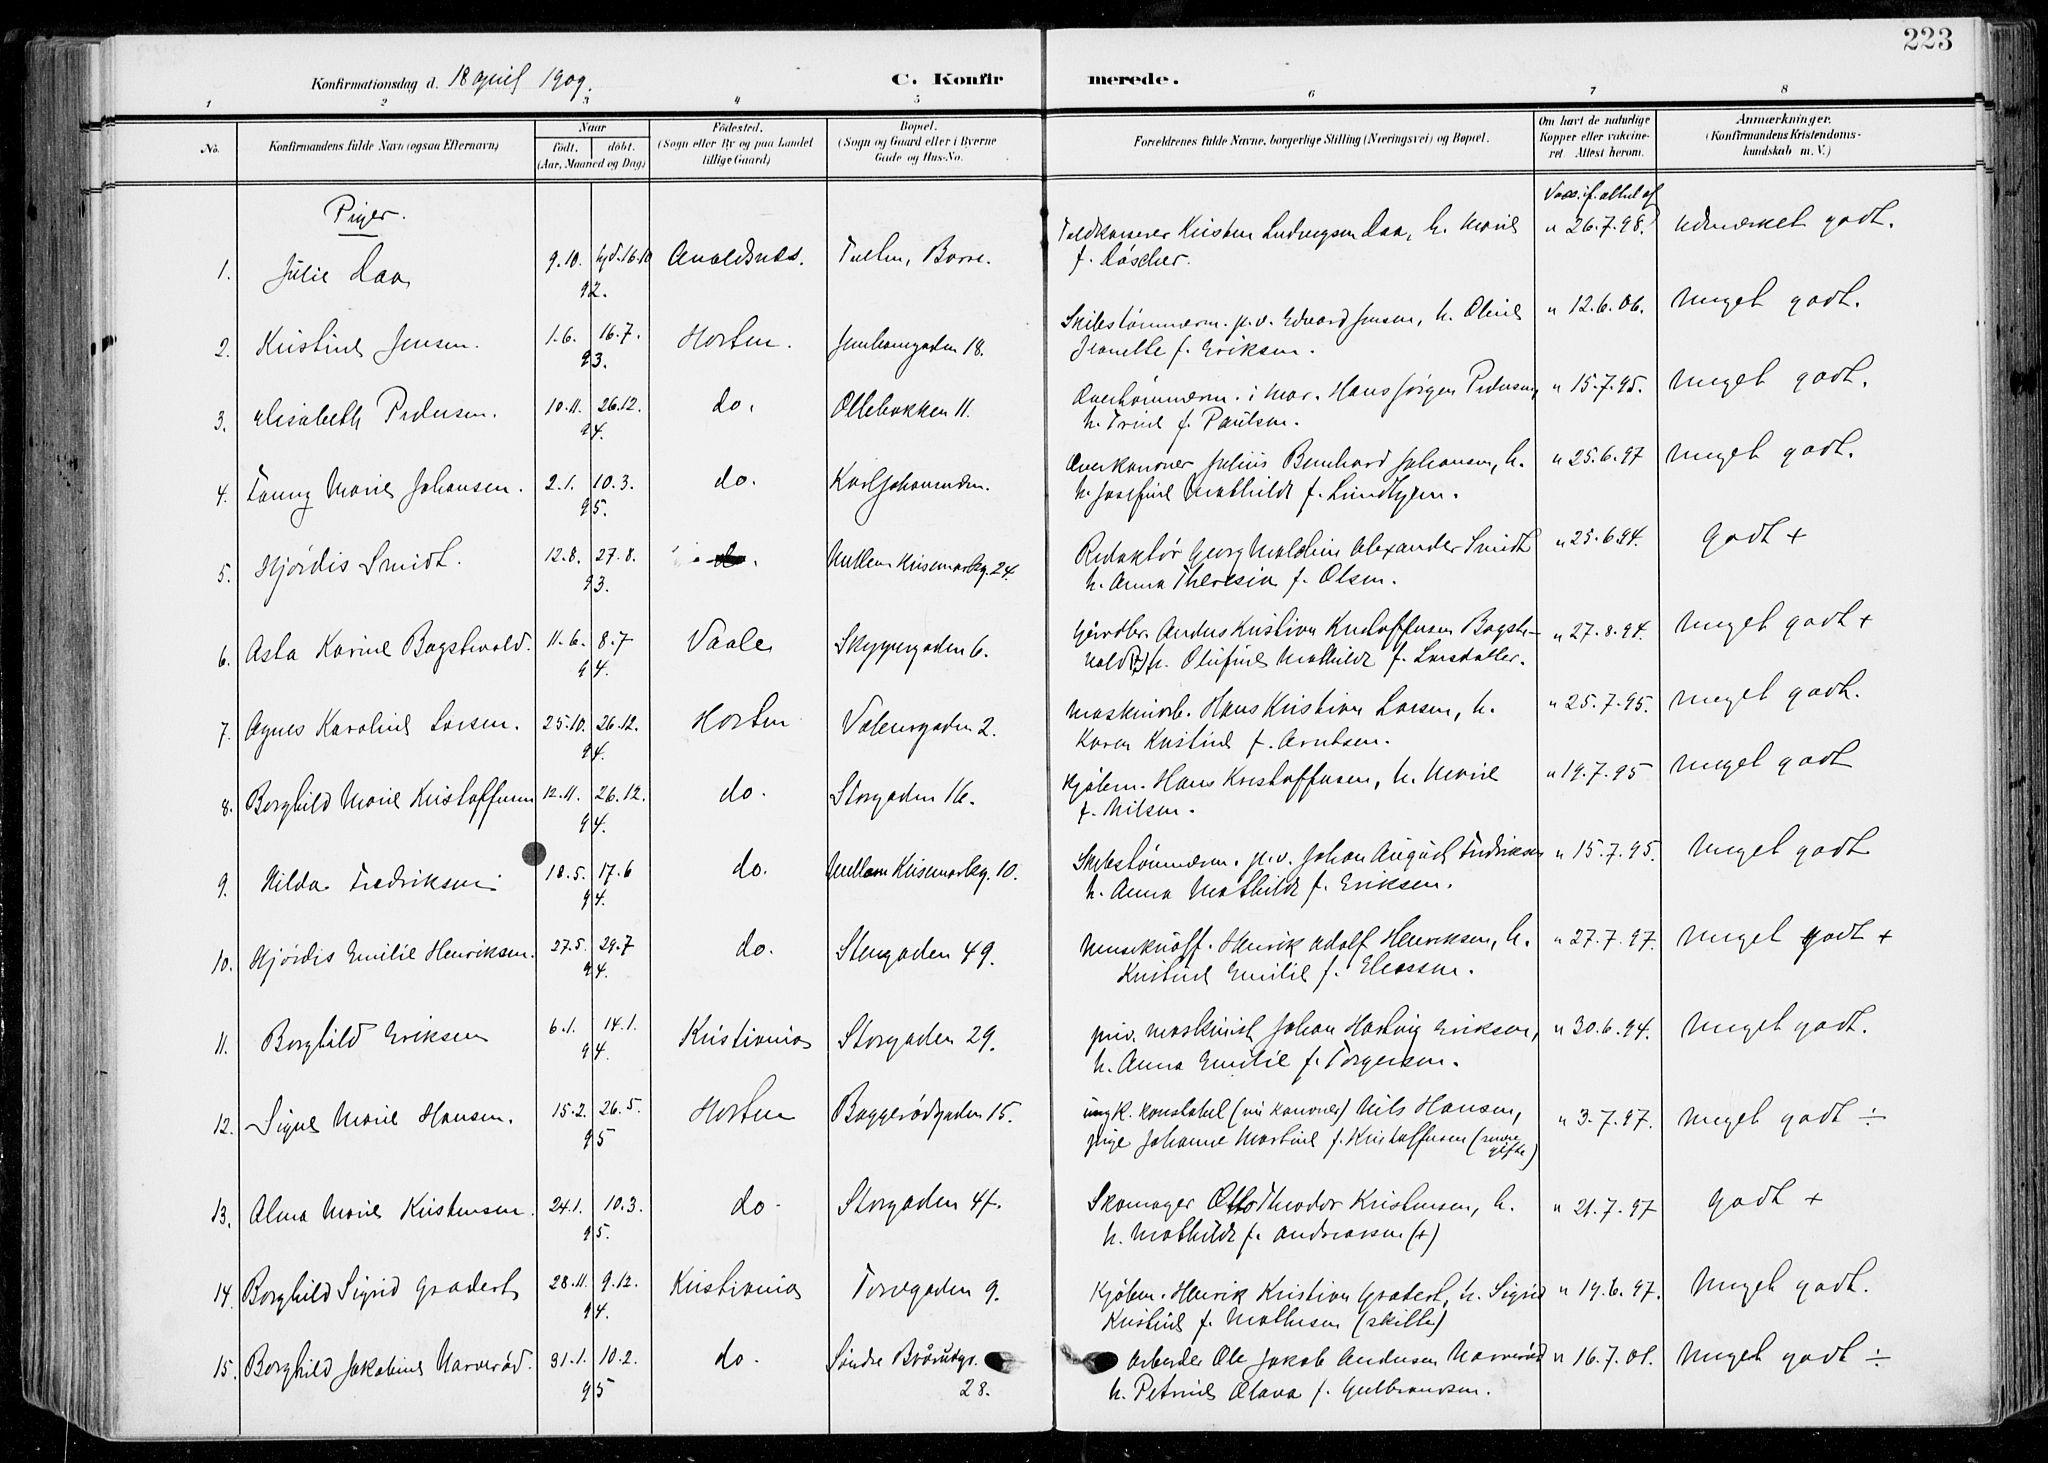 223
Konfirmationsdag d. 18 april 1909.
C. Konfirmerede.
1 2 3 4 5 6 7 8
No.
Konfirmandens fulde Navn (ogsaa Efternavn)
Naar
født. døbt.
(Aar, Maaned og Dag)
Fødested.
(Sogn eller By og paa Landet
tillige Gaard)
Bopæl.
(Sogn og Gaard eller i Byerne
Gade og Hus-No.
Forældrenes fulde Navne, borgerlige Stilling (Næringsvei) og Bopæl.
Om havt de naturlige
Kopper eller vakcine-
ret. Attest herom.
Anmærkninger.
(Konfirmandens Kristendoms-
kundskab m. V.)
Piger.
Vacc. if. attest af
1. Julie Daa 9.10. hjd. 16.10 92. Avaldsnes. Borre. Toldkasserer Kristen Ludvigsen Daa, h. Marie
f. Døscher. " 26.7.98. udmerket godt.
2. Kristine Jensen. 1.6. 16.7. 93. Horten. Jernbanegaden 18. Skibstømmerm. p.v. Edvard Jensen, h. Oline
Jeanette f. Eriksen. " 12.6.06. Meget godt.
3. Elisabeth Pedersen. 10.11. 26.12. 94. do. Ollebakken 11. Overtømmerm. i Mar. Hans Jørgen Pedersen,
h. Trine f. Paulsen. " 15.7.95. Meget godt.
4. Fanny Marie Johansen. 2.1. 10.3. 95. do. Karljohansvern. Overkanoner Julius Bernhard Johansen, h.
h. Josefine Mathilde f. Lundbygen. " 25.6.97 Meget godt.
5. Hjørdis Smidt. 12.8. 27.8. 93. do. Mellem Kirsemarkg. 24. Redaktør Georg Alexander Smidt
h. Anna Theresia f. Olsen. " 25.6.94. godt +
6. Asta Karine Bagstevold. 11.6. 8.7 94. Vaale Skippergaden 6. Anders Kristian Kristoffersen Bagste-
vold (+) h. Olufine Mathilde f. Larsdatter. " 27.8.94. Meget godt +
7. Agnes Karoline Larsen. 25.10. 26.12. 94. Horten Valensgaden 2. Maskinarb. Hans Kristian Larsen, h.
Karen Kristine f. Arntsen. " 25.7.95. Meget godt.
8. Borghild Marie Kristoffersen 12.11. 26.12. 94. do. Storgaden 16. Kjøbm. Hans Kristoffersen, h. Marie
f. Nilsen. " 19.7.95 Meget godt
9. Hilda Fredriksen 18.5. 17.6 94. do. Mellem Kirsemarkg. 10. Skibstømmerm. p.v. Johan August Fredriksen
h. Anna Mathilde f. Eriksen. " 15.7.95. Meget godt
10. Hjørdis Emilie Henriksen. 27.5. 29.7 94. do. Storgaden 49. Henrik Adolf Henriksen, h.
Kristine Emilie f. Eliassen. " 27.7.97. Meget godt +
11. Borghild Eriksen 6.1. 14.1. 94. Kristiania Storgaden 29. priv. maskinist Johan Hartvig Eriksen,
h. Anna Emilie f. Torgersen. " 30.6.94. Meget godt.
12. Signe Marie Hansen. 15.2. 26.5. 95 Horten Baggerødgaden 15. ungk. konstabel (nu kanoner) Nils Hansen,
pige Johanne Martine f. Kristoffersen (senere
gifte) " 3.7.97. Meget godt ÷
13. Alma Marie Kristensen. 24.1. 10.3. 95. do. Storgaden 47. Skomager Otto Theodor Kristensen, h.
h. Mathilde f. Andreassen (+) " 21.7.97 godt +
14. Borghild Sigrid Gradert 28.11. 9.12. 94. Kristiania Torvegaden 9. Kjøbm. Henrik Kristian Gradert, h. Sigrid
Kristine f. Mathisen (skilte) " 19.6.97. Meget godt.
15. Borghild Jakobine Narverød. 31.1. 10.2. 95 do. Søndre Brårudgr.
28. Arbeider Ole Jakob Andersen Narverød
h. Petrine Olava f. Gulbrandsen. " 16.7.01. Meget godt ÷